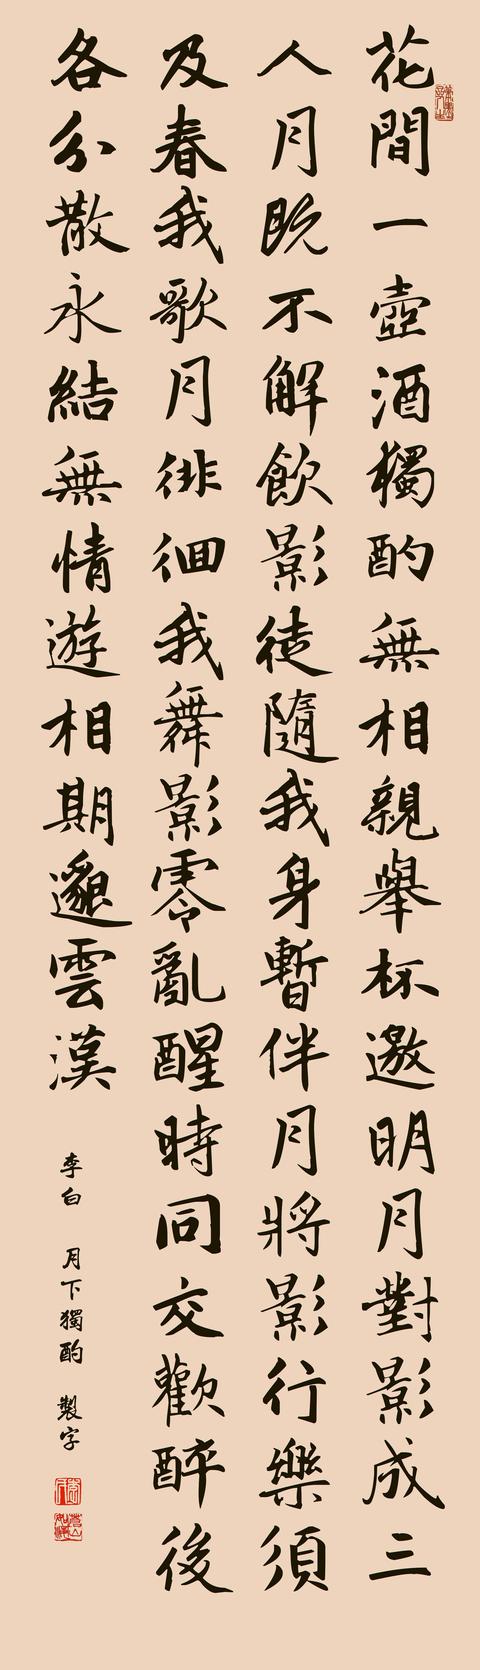 花間一壺酒獨酌無相親舉杯邀明月對影成三
人月既不解飲影徒隨我身暫伴月將影行樂須
及春我歌月徘徊我舞影零亂醒時同交歡醉後
各分散永結無情遊相期邈雲漢
李白 月下獨酌 製字